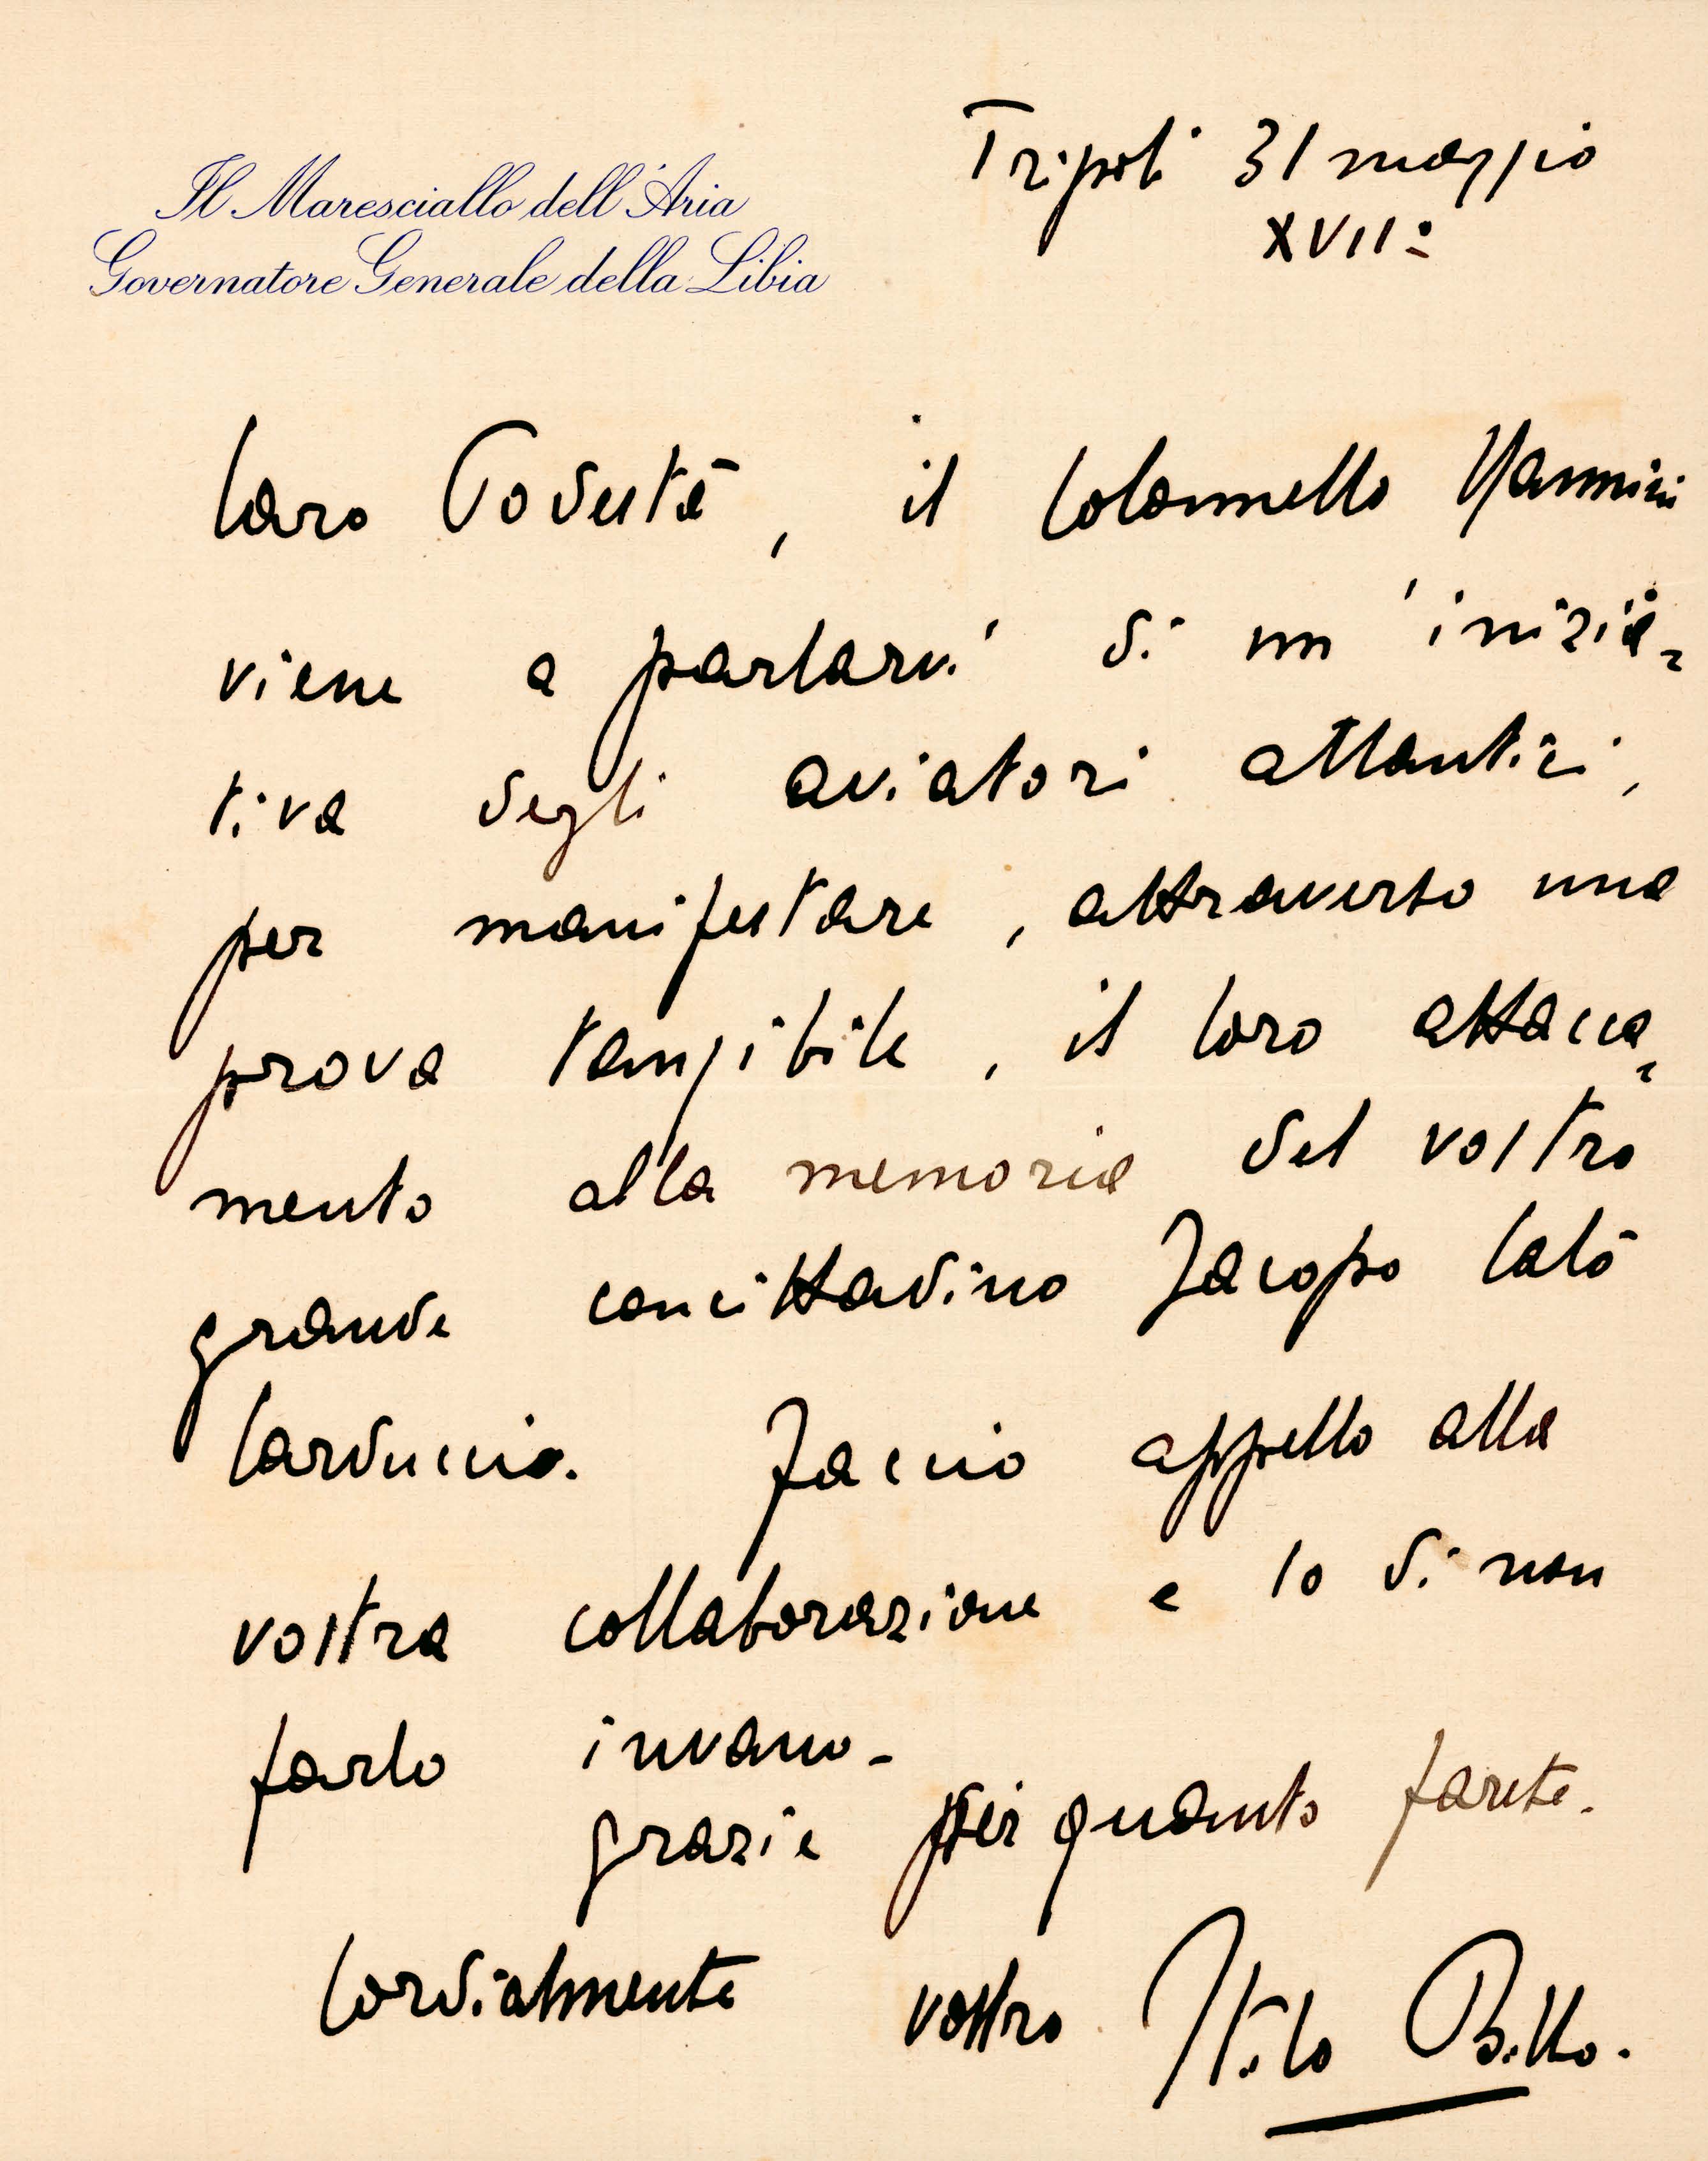 Il Maresciallo dell'Aria
Governatore Generale della Libia
Tripoli 31 maggio
XVIIº
Caro Podestà, il Colonnello Nannini
viene a parlarvi di un'inizia=
tiva degli aviatori atlantici,
per manifestare, attraverso una
prova tangibile, il loro attacca=
mento alla memoria del vostro
grande concittadino Jacopo Calò
Carduccio. Faccio appello alla
vostra collaborazione e so di non
farlo invano-
grazie per quanto farete.
Cordialmente vostro Italo Balbo.